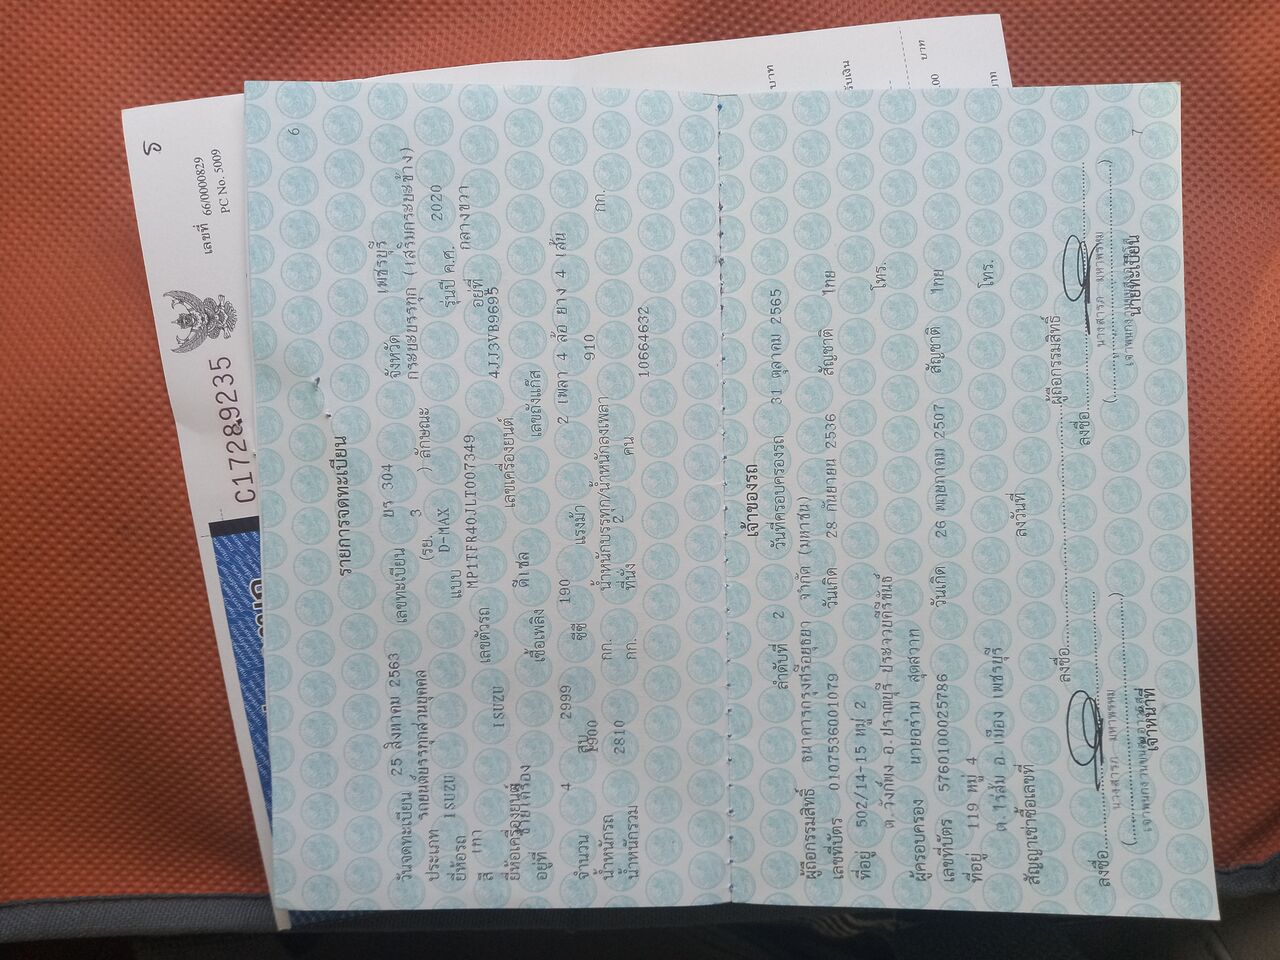 ร
เลขที่ 66/0000829
PC No. 5009
C17289235
บาท
รับเงิน
.00 บาท
บาท
6
รายการจดทะเบียน
วันจดทะเบียน 25 สิงหาคม 2563 เลขทะเบียน บร 304 จังหวัด เพชรบุรี
ประเภท รถยนต์บรรทุกส่วนบุคคล (รย. 3 ) ลักษณะ กระบะบรรทุก (เสริมกระบะข้าง)
ยี่ห้อรถ ISUZU แบบ D-MAX รุ่นปี ค.ศ. 2020
สี เทา เลขตัวรถ MP1TFR40JLT007349 อยู่ที่ กลางขวา
ยี่ห้อเครื่องยนต์ ISUZU เลขเครื่องยนต์ 4JJ3VB9695
อยู่ที่ ซ้ายเครื่อง เชื้อเพลิง ดีเซล เลขถังแก๊ส
จำนวน 4 สูบ 2999 ซีซี 190 แรงม้า 2 เพลา 4 ล้อ ยาง 4 เส้น
น้ำหนักรถ 1900 กก. น้ำหนักบรรทุก/น้ำหนักลงเพลา 910 กก.
น้ำหนักรวม 2810 กก. ที่นั่ง 2 คน 10664632
เจ้าของรถ
ลำดับที่ 2 วันที่ครอบครองรถ 31 ตุลาคม 2565
ผู้ถือกรรมสิทธิ์ ธนาคารกรุงศรีอยุธยา จำกัด (มหาชน)
เลขที่บัตร 0107536001079 วันเกิด 28 กันยายน 2536 สัญชาติ ไทย
ที่อยู่ 502/14-15 หมู่ 2
ต.วังก์พง อ.ปราณบุรี ประจวบคีรีขันธ์ โทร.
ผู้ครอบครอง นายอร่าม สุดสวาท
เลขที่บัตร 5760100025786 วันเกิด 26 พฤษภาคม 2507 สัญชาติ ไทย
ที่อยู่ 119 หมู่ 4
ต.ไร่ส้ม อ.เมือง เพชรบุรี โทร.
สัญญาเช่าซื้อเลขที่ ลงวันที่
ลงชื่อ ผู้ถือกรรมสิทธิ์
ลงชื่อ ลงชื่อ
นางสารภี มหาพรหม นางสารภี มหาพรหม
เจ้าหน้าที่ นายทะเบียน
7